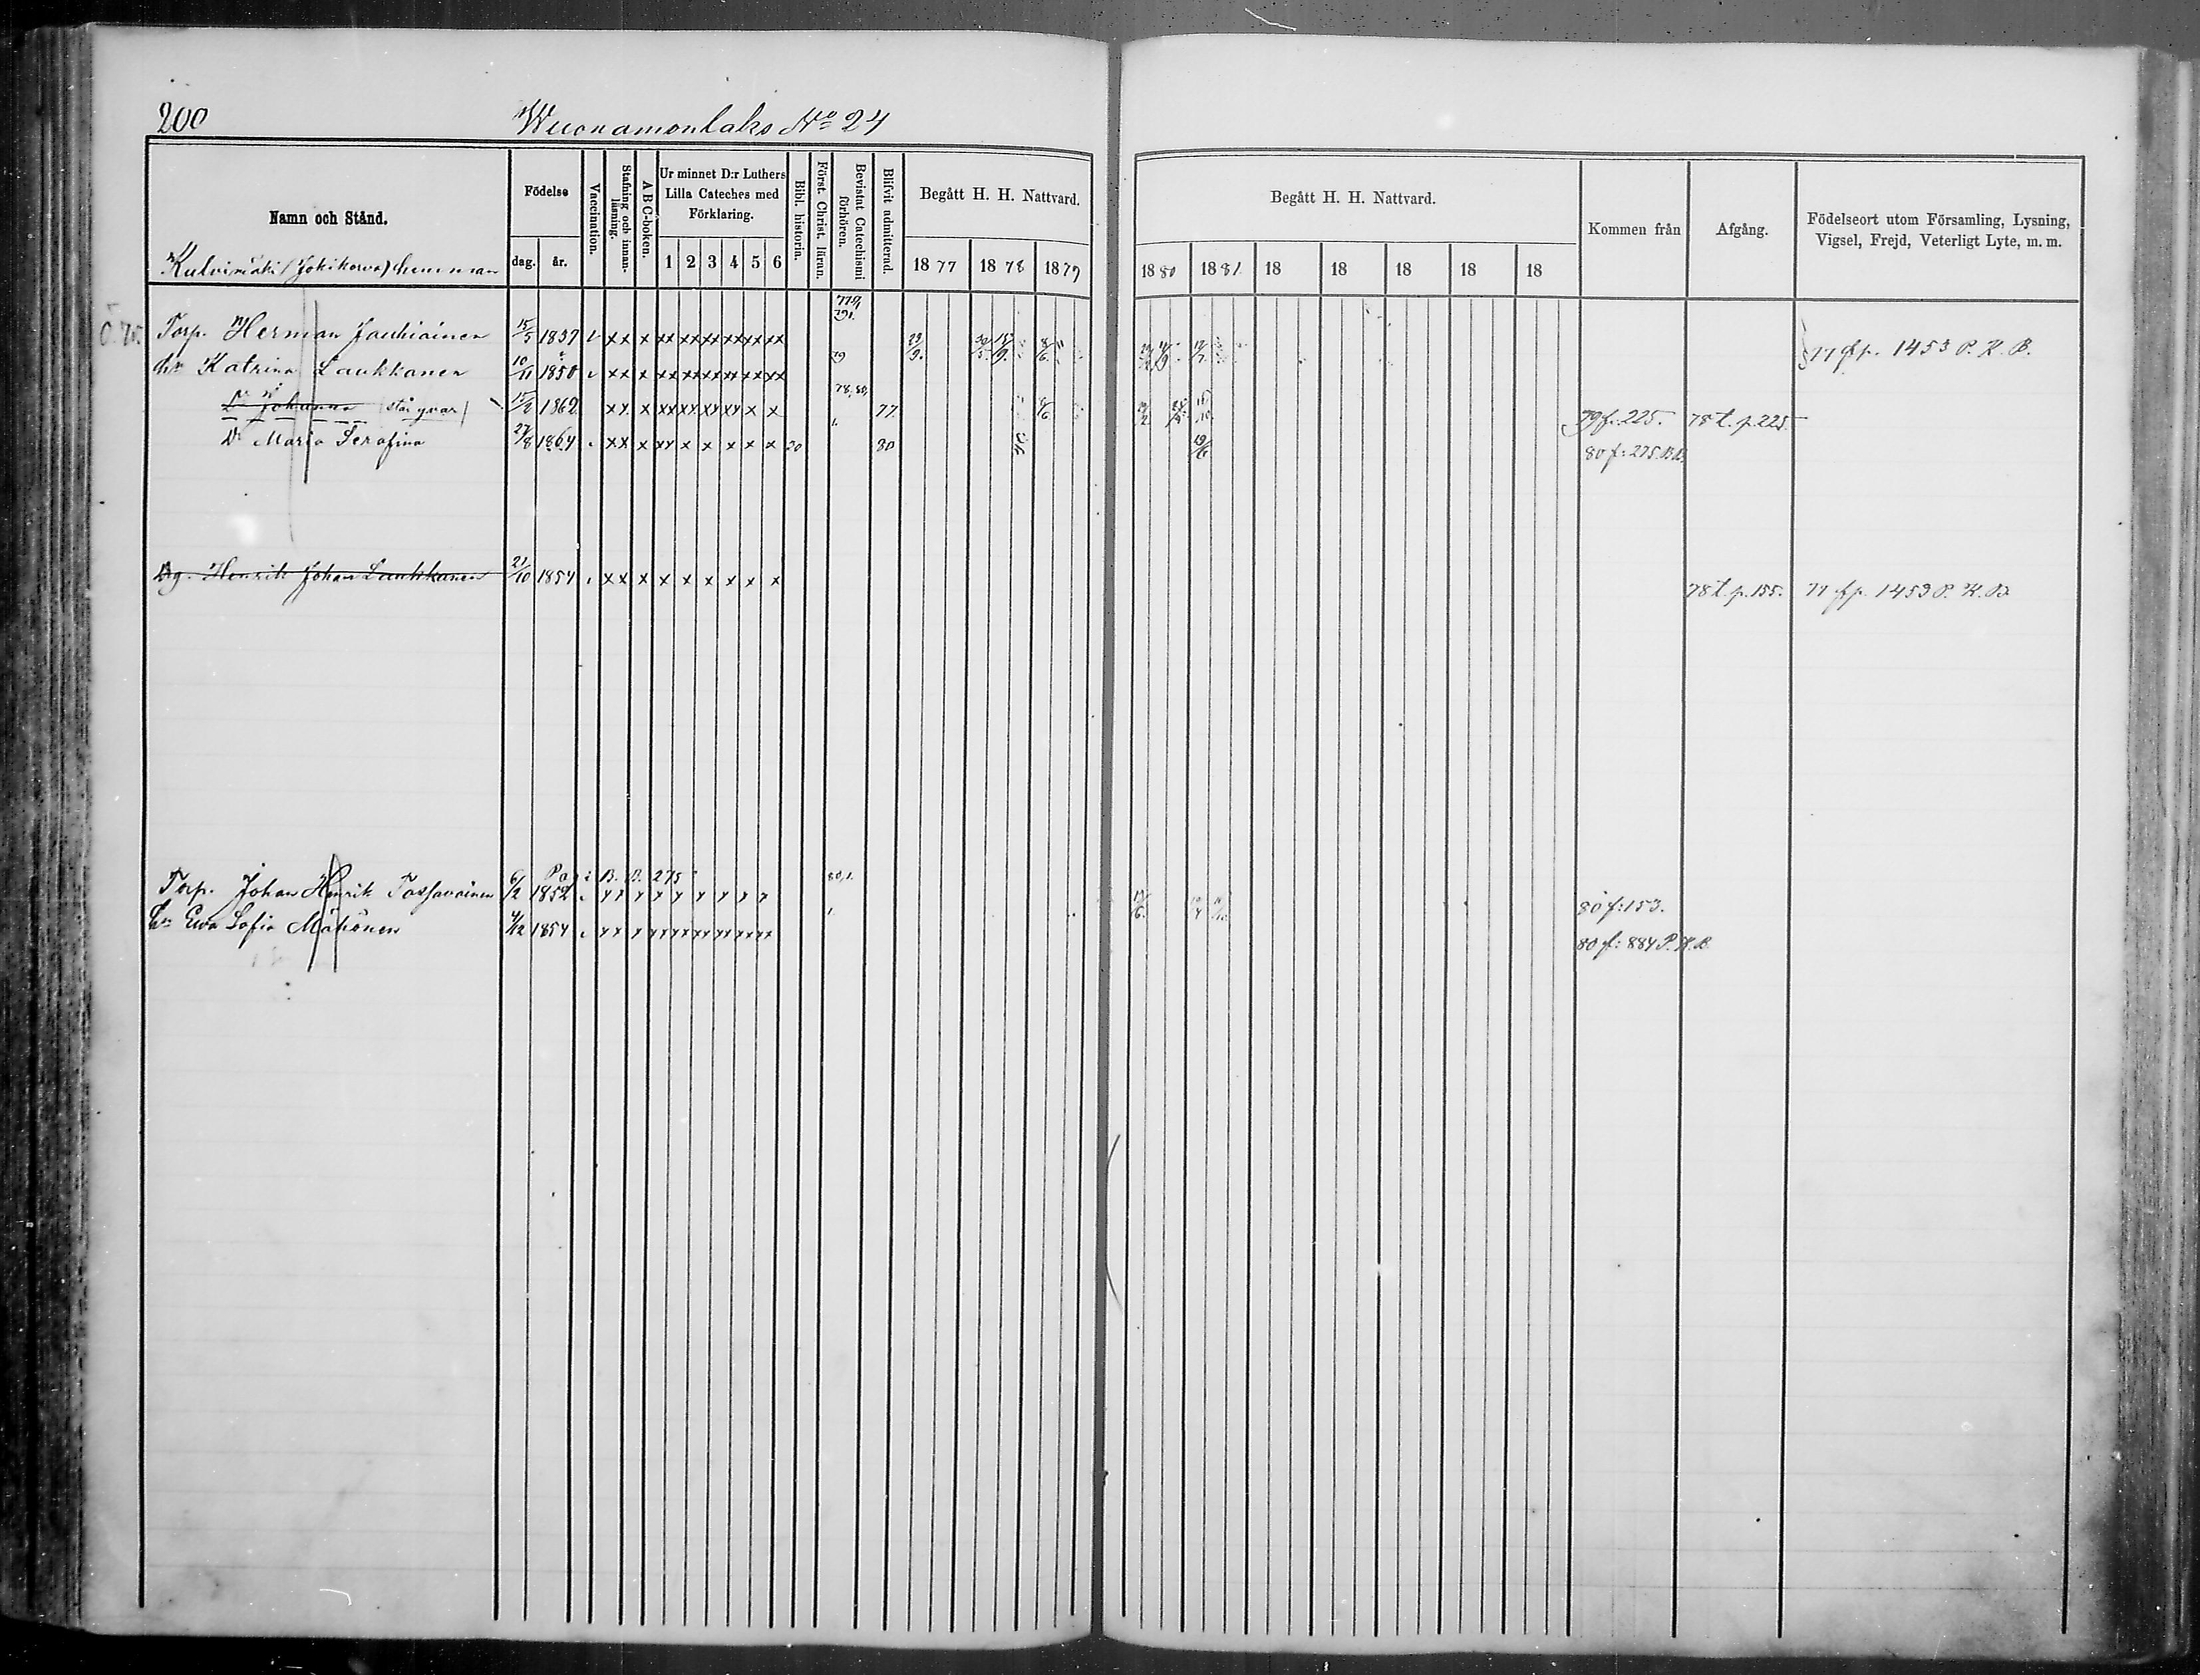 200
Wuonamonlaks No 24
Namn och Stånd.
Födelse
dag.
år.
Vaccination.
Stafning och innan-läsning.
A B C-boken.
Ur minnet D:r Luthers Lilla Cateches med Förklaring.
1 2 3 4 5 6
Bibl. historin.
Först. Christ. läran.
Bevistat Catechismi förhören.
Blifvit admitterad.
Begått H. H. Nattvard.
1877 1878 1879
Begått H. H. Nattvard.
1880 1881 18 18 18 18 18
Kommen från
Afgång.
Födelseort utom Församling, Lysning, Vigsel, Frejd, Veterligt Lyte, m. m.
(Jokikorva) hemman
Torp. Herman Jauhiainen 15/5 1837 xx x xx xx xx xx xx xx 23/9. 8/6 77 fp. 1453 P. K. B.
hu Katrina Laukkanen 10/11 1850 xx x xx xx xx xx xx xx 79
Dr Johanna (står qvar) 15/2 1862 xx x xx xx xx xx x x 78,80, 77. 8/6 79 f:225. 78 t. p. 225
Dr Maria Serafina 27/8 1864 xx x xx x x x x x 80 80 19/6 80 f: 275. B.B.
Drg. Henrik Johan Laukkanen 21/10 1854 xx x x x x x x x 78 t. p. 155. 77 fp. 1453 P. K. B.
Pag: B. B. 275
Torp. Johan Henrik Tossavainen 6/2 1852 xx x x x x x x x 80,1. 80 f:153.
hu Eva Sofia Mähönen 4/12 1854 xx x xx xx xx xx xx xx 80 f: 884 P. K. B.